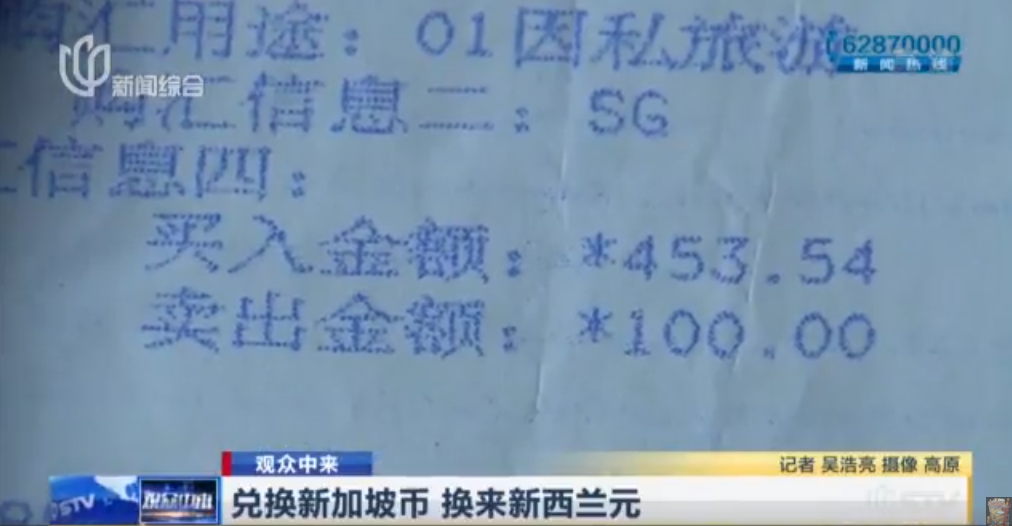 购汇用途：01因私旅游
62870000
新闻热线
新闻综合
购汇信息二：SG
汇信息四：
买入金额：*453.54
卖出金额：*100.00
观众中来
记者 吴浩亮 摄像 高原
STV
观众中来
兑换新加坡币 换来新西兰元
STV